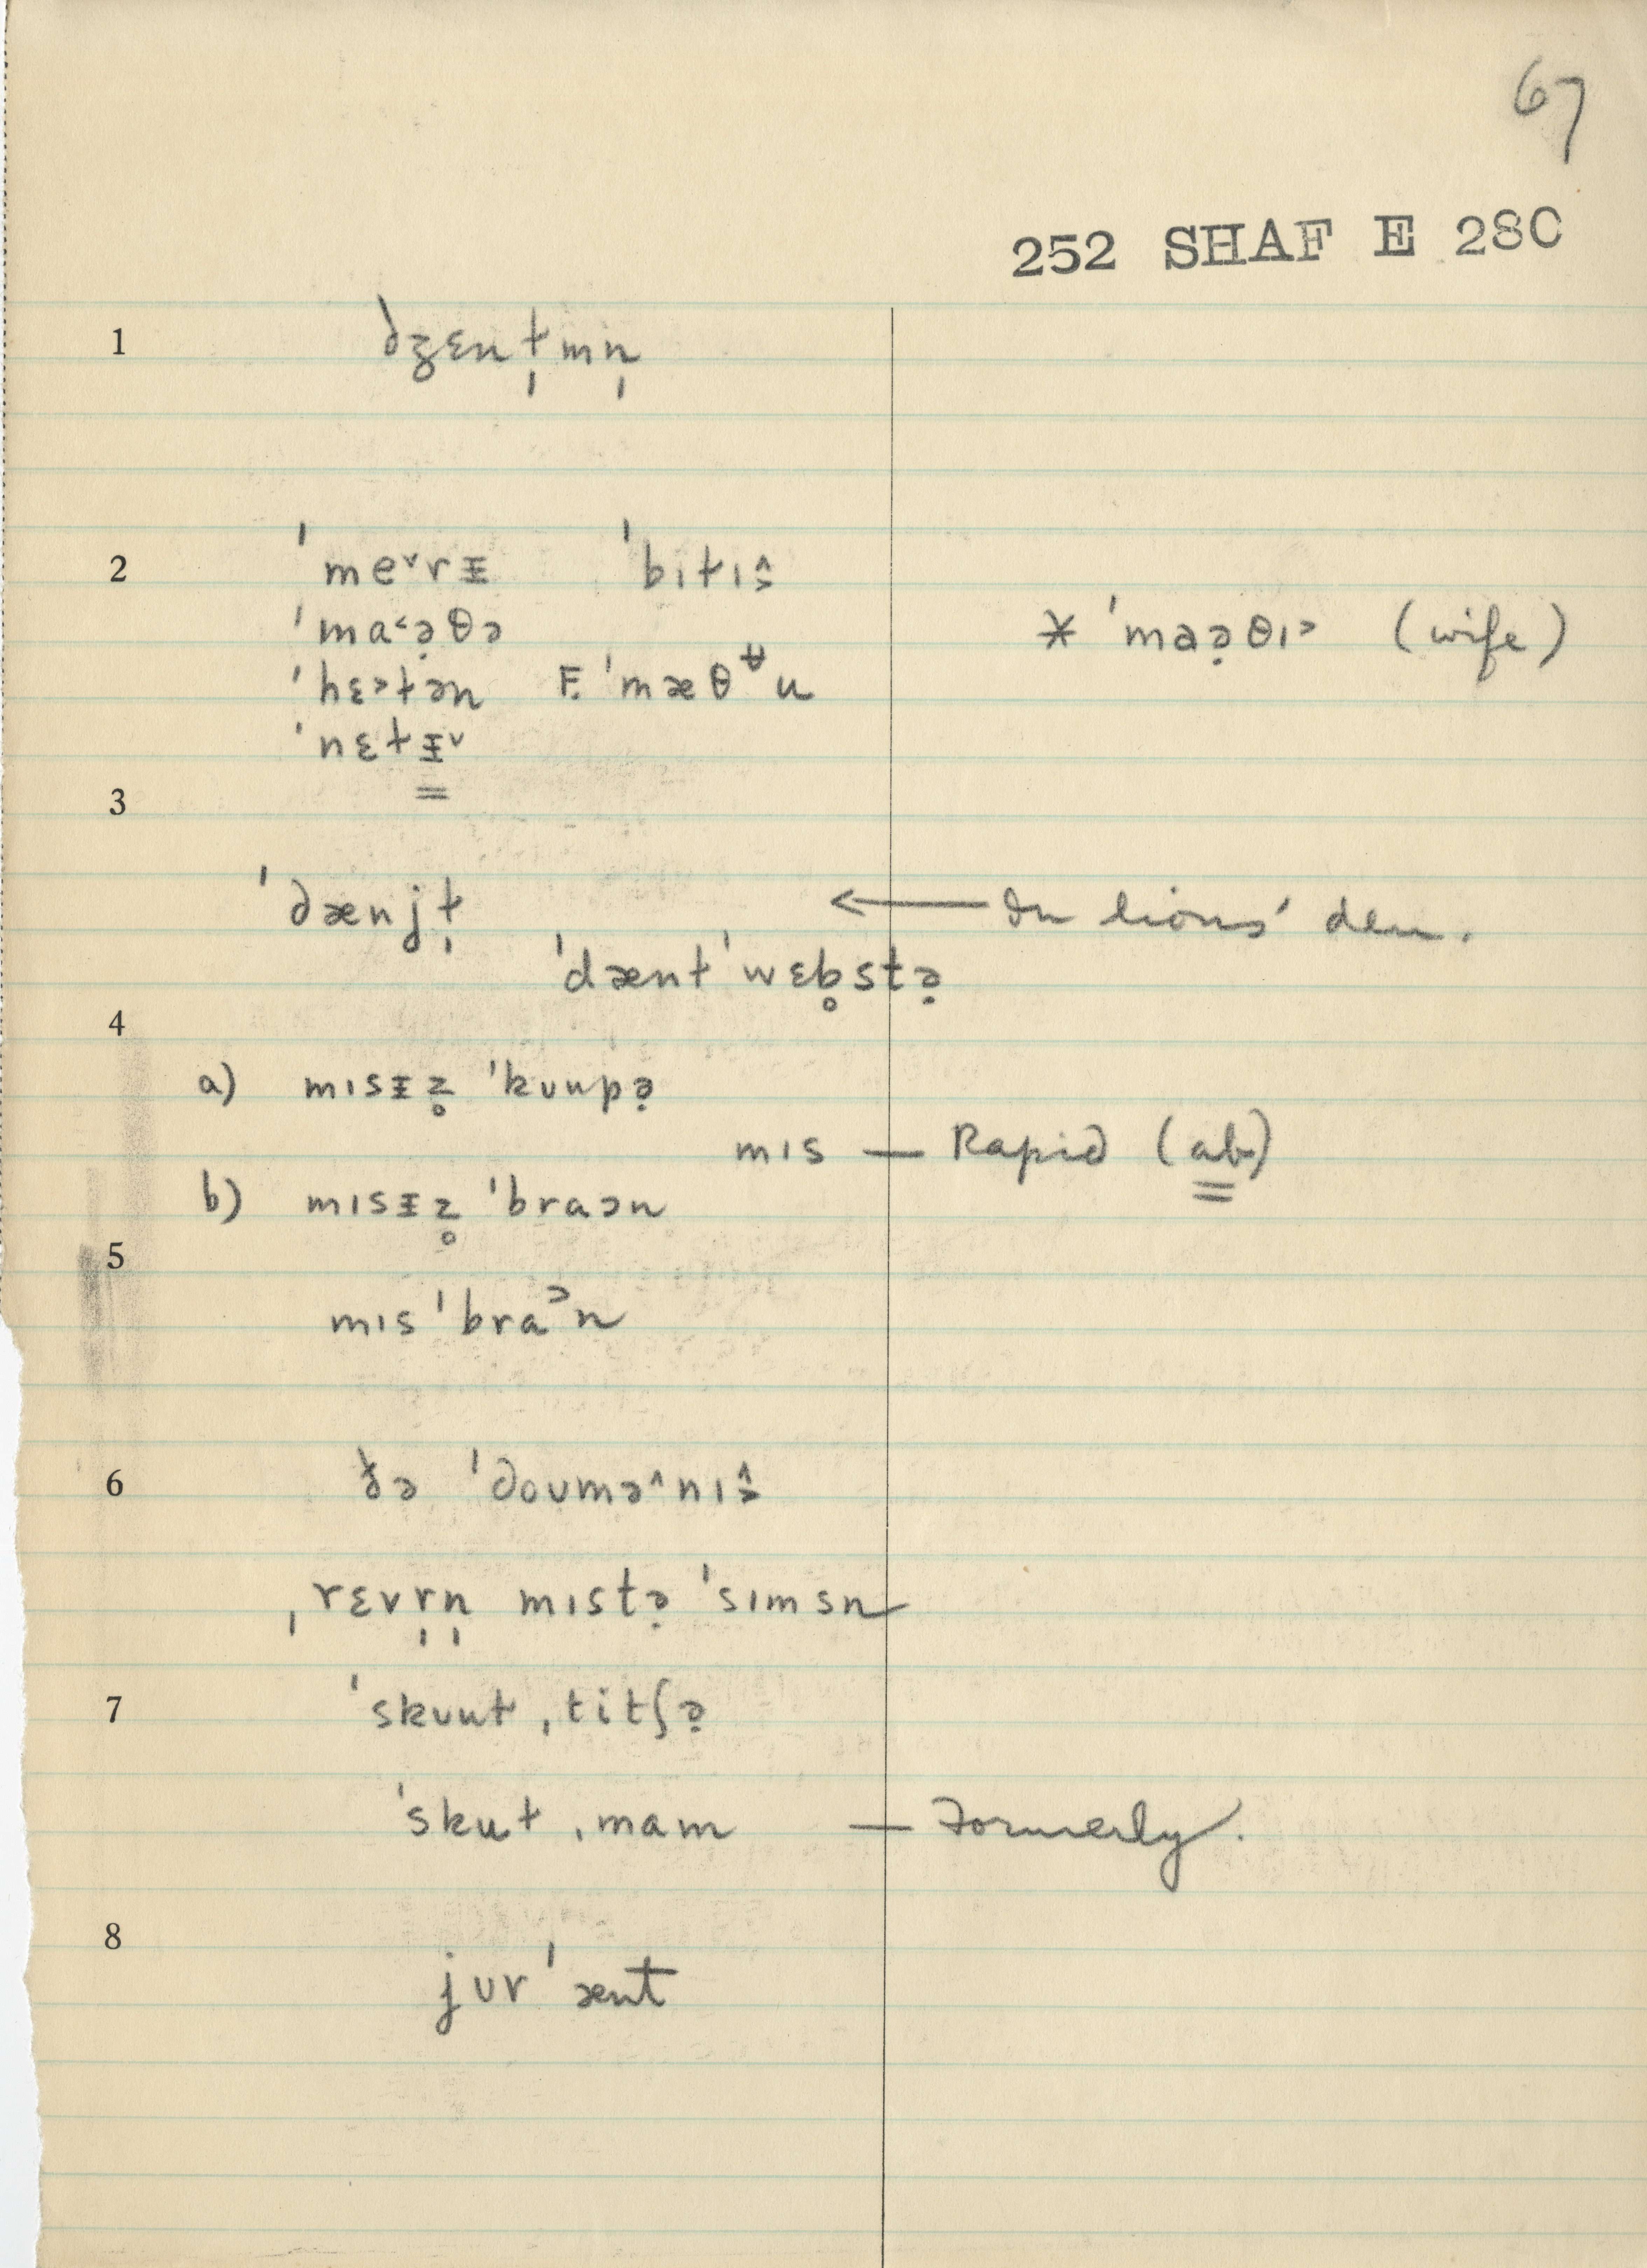 67
252 SHAF E 28C
1 dʒɛnt̩mn̩
2 ˈme˅rᵻ ˈbitɪŝ
ˈma˂ə̣θə * ˈmaə̣θɪ˃ (wife)
ˈhɛ˃tən F. ˈmæθʉu
ˈnɛtᵻ˅
3
ˈdænjt̩ ← In lions' den.
ˈdæntˈwɛb̥stə̣
4
a) mɪsᵻz̥ ˈkʊupə̣
mɪs — Rapid (ab)
b) mɪsᵻz̥ ˈbraɔn
5
mɪsˈbraᵓn
6 ðə ˈdoʊmə˄nɪŝ
ˌrɛvr̩n̩ mɪstə̣ ˈsɪmsn
7 ˈskʊut ˌtitʃə̣
ˈskut ˌmam — Formerly.
8
jʊrˈænt